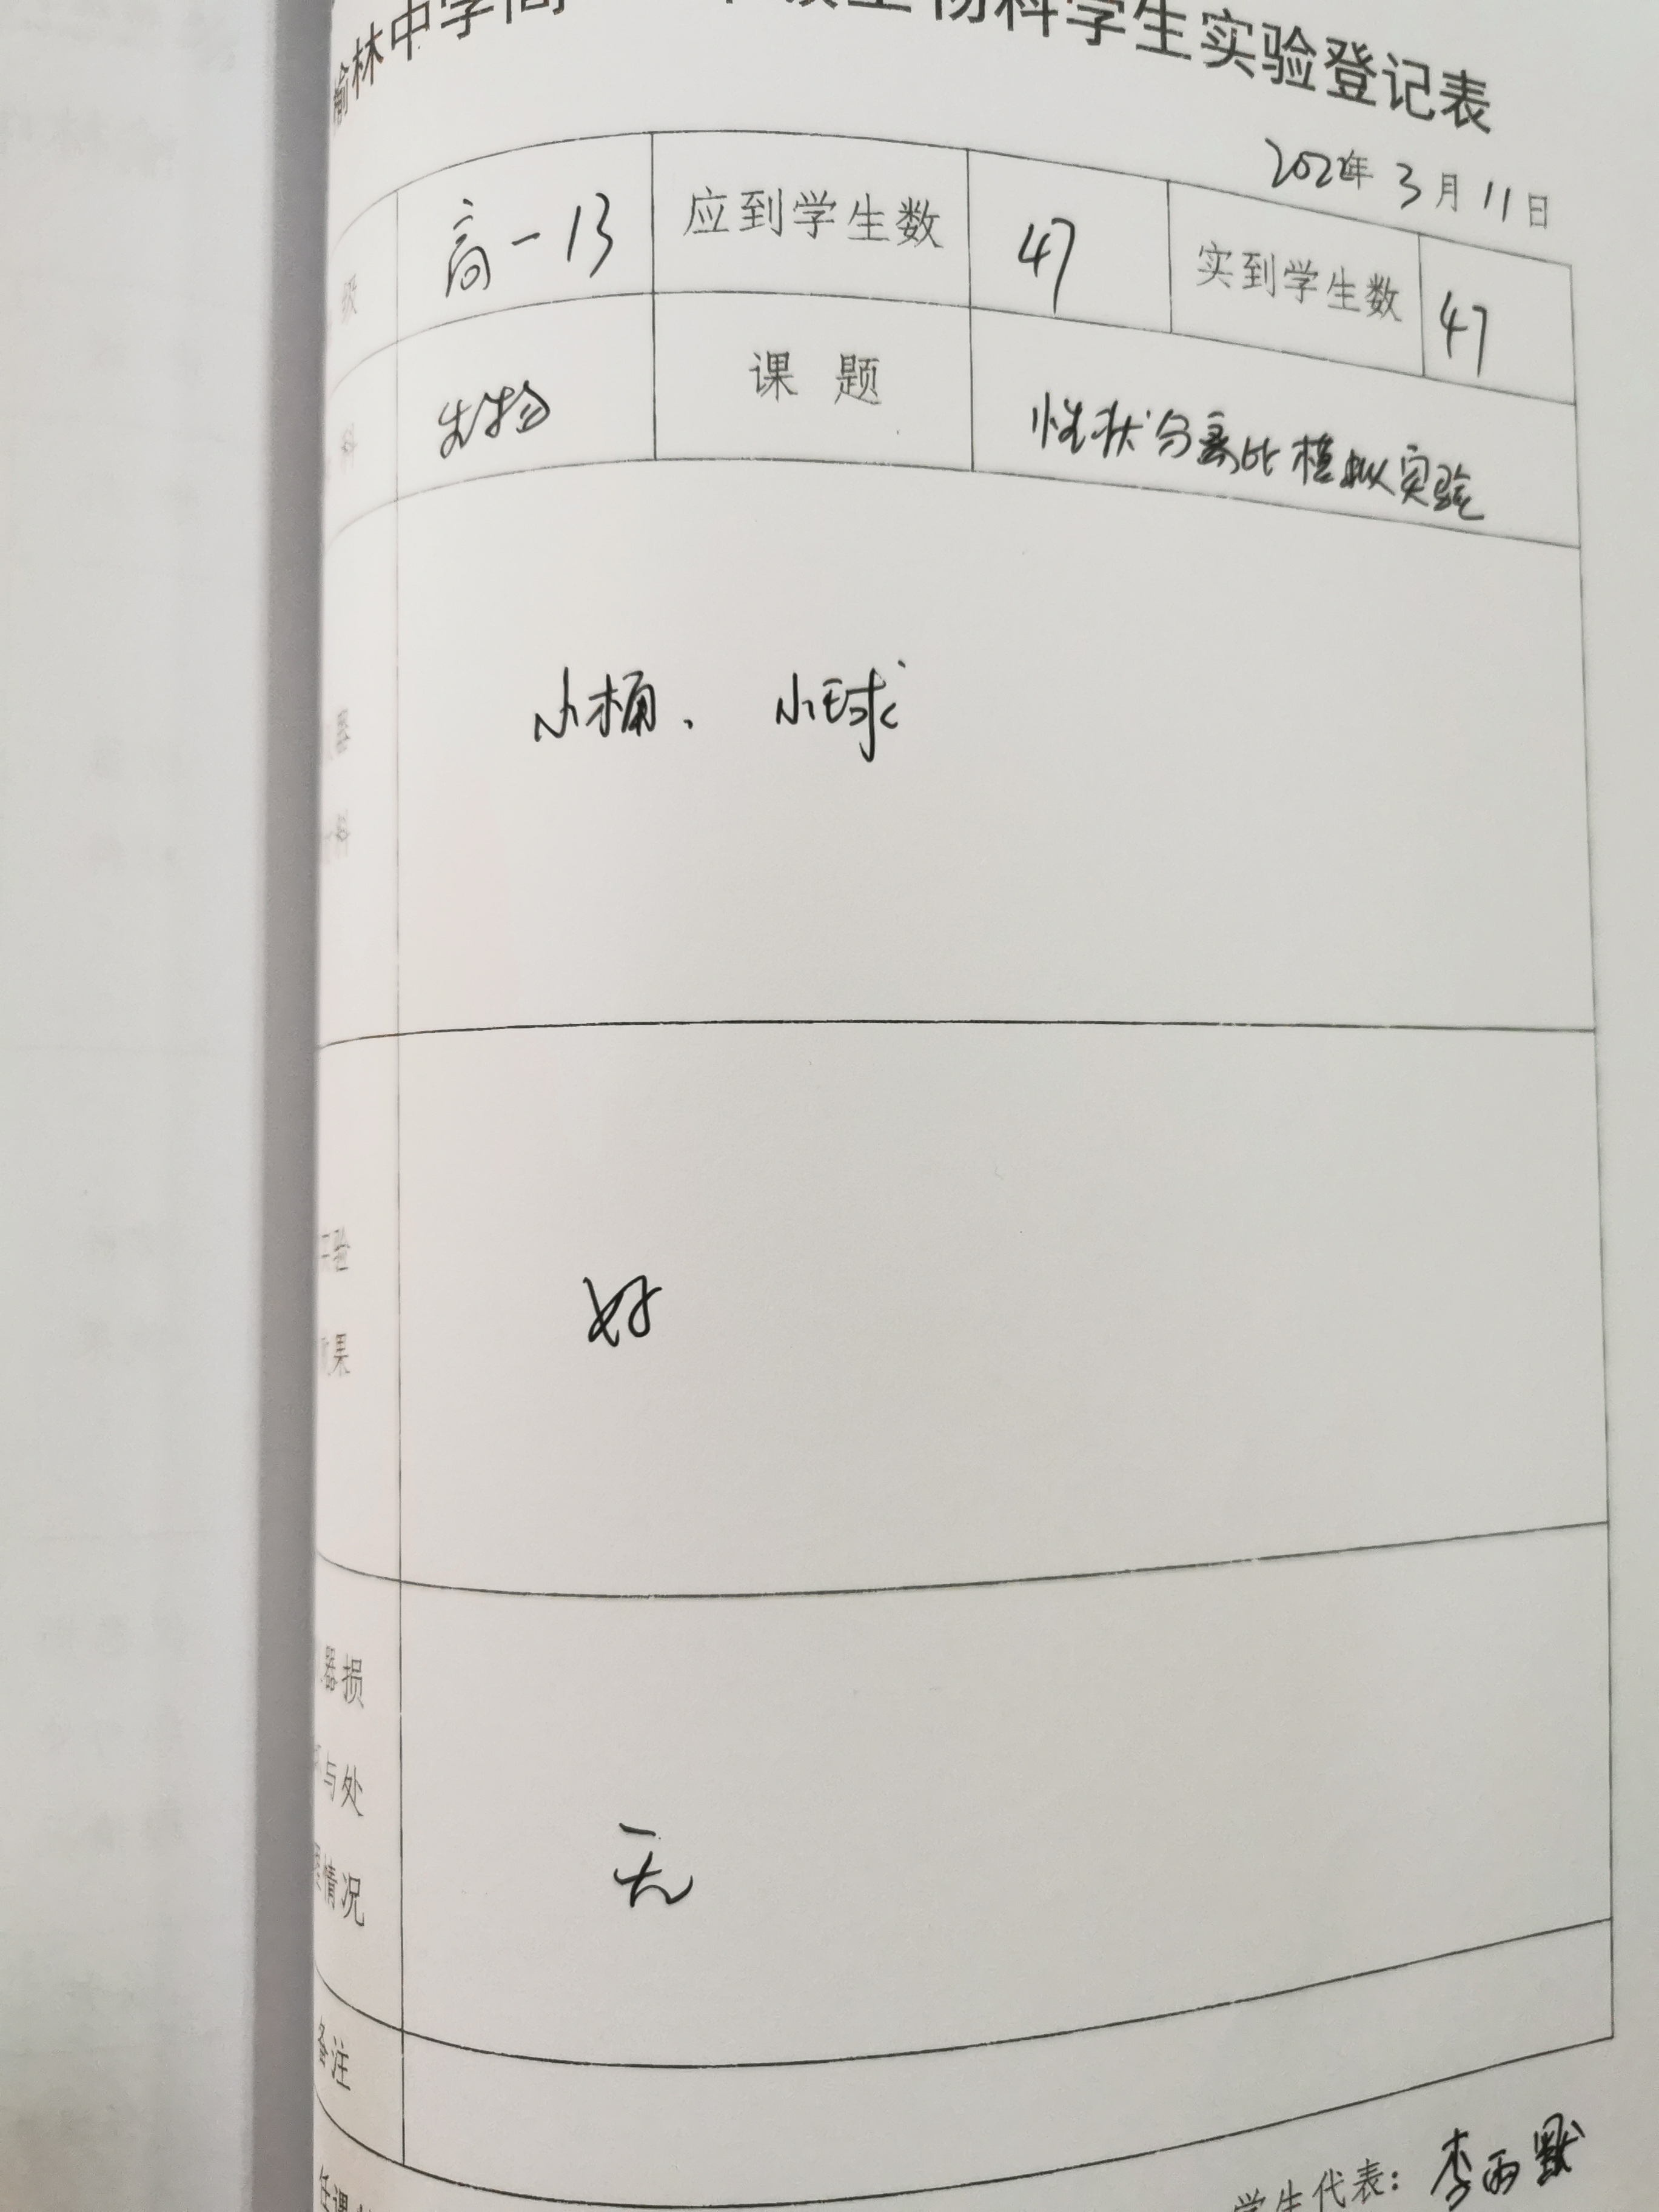 榆林中学高 年级生物科学生实验登记表
2022年 3 月 11 日
级 高一13 应到学生数 47 实到学生数 47
科 生物 课 题 性状分离比模拟实验
器 小桶、 小球
料
实验 好
效果
器损
坏与处 无
理情况
备注
任课 学生代表：李雨默